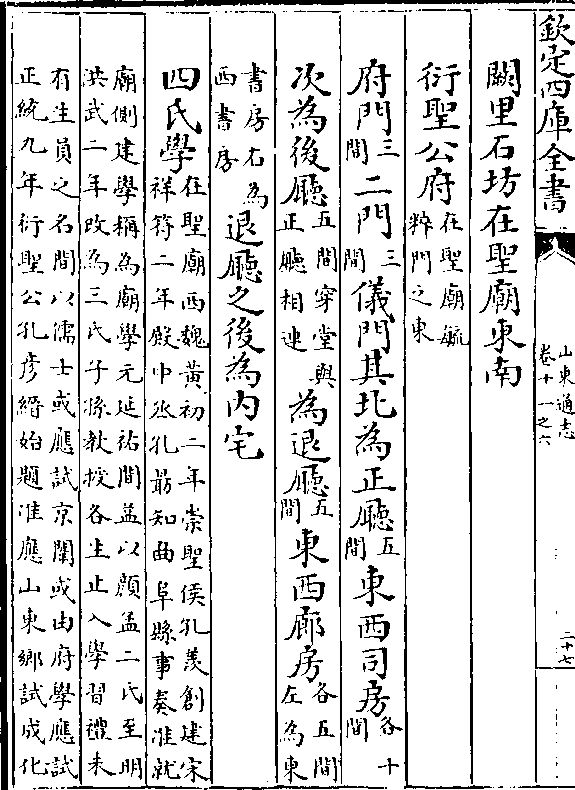 欽定四庫全書
山東通志
卷十一之六
二十七
闕里石坊在聖廟東南
衍聖公府在聖廟毓
粹門之東
府門三間二門三間儀門其北為正廳五間東西司房各十間
次為後廳五間穿堂與正廳相連為退廳五間東西廊房各五間左為東
書房右為西書房退廳之後為内宅
四氏學在聖廟西魏黄初二年崇聖侯孔羡創建宋
祥符二年殿中丞孔朂知曲阜縣事奏准就
廟側建學稱為廟學元延祐間益以顔孟二氏至明
洪武二年改為三氏子孫教授各生止入學習禮未
有生員之名間以儒士或應試京闈或由府學應試
正統九年衍聖公孔彦縉始題准應山東鄉試成化